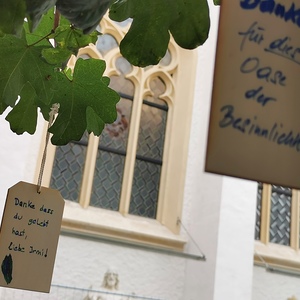 Danke dass
du gelebt
hast,
liebe Irmi!
Danke
für diese
Oase
der
Besinnlichkeit